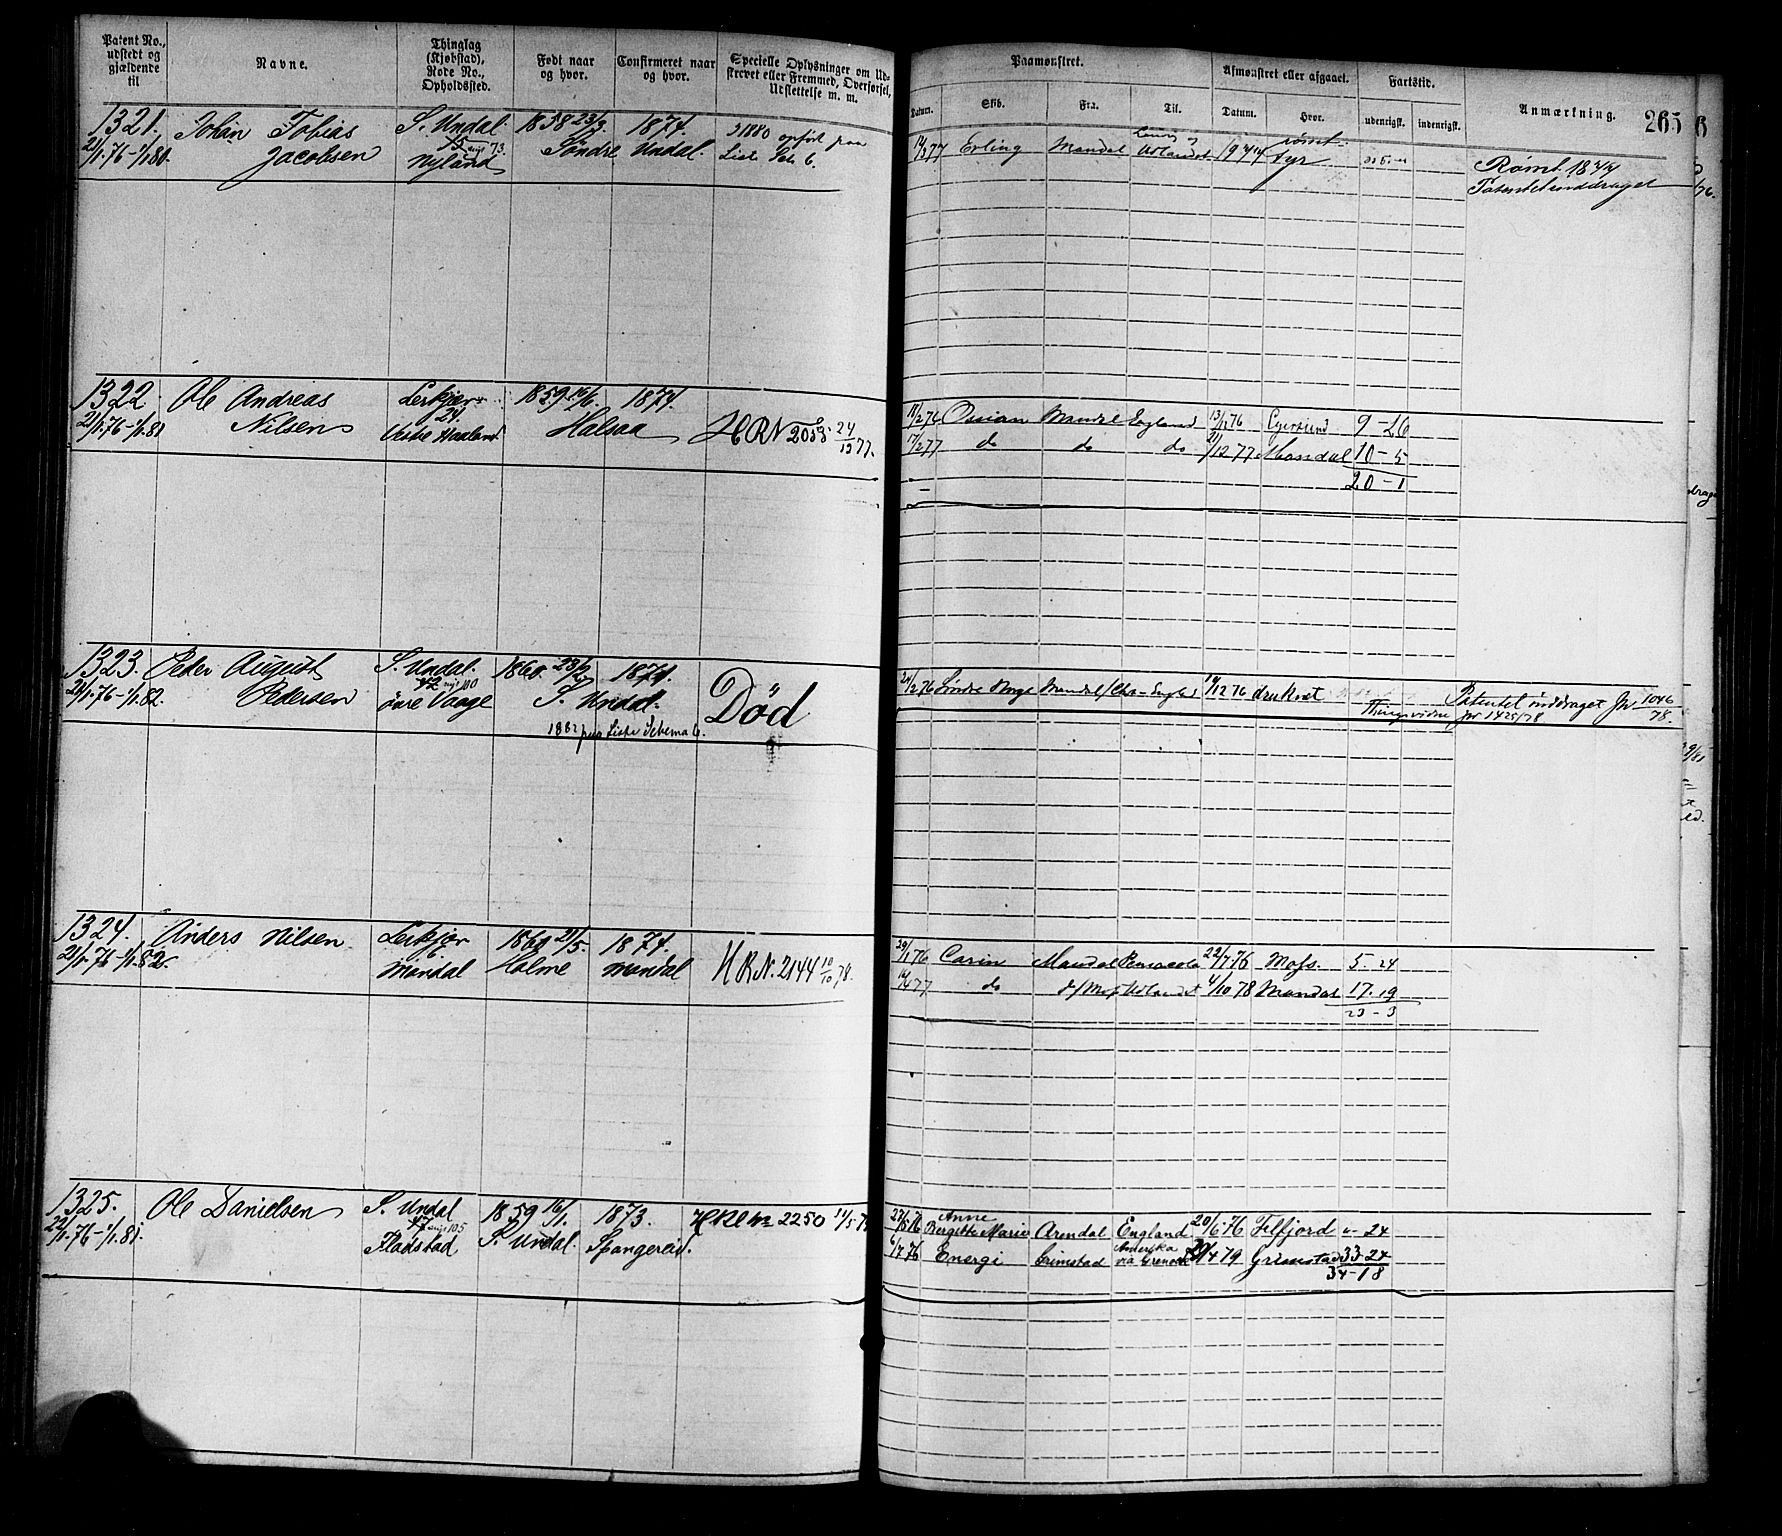 Patent No., udstedt og gjældende til
Navne.
Thinglag (Kjøbstad), Rode No., Opholdssted.
Født naar og hvor.
Confirmeret naar og hvor.
Specielle Oplysninger om Udskrevet eller Fremmed, Overførsel, Udslettelse m. m.
Paamønstret.
Datum. Skib. Fra. Til.
Afmønstret eller afgaaet.
Datum. Hvor.
Fartstid.
udenrigsk. indenrigsk.
Anmærkning.
265
1321. Johan Tobias S. Undal. 1858 23/3 1874. 1880 opført paa
21/1.76-1/1.80. Jacobsen 5 73. Nyland Søndre Undal. Liste Sch. 6
77 Erling Mandal Udlandet rømt
Rømt 1877
Patentet inddraget
1322. Ole Andreas Lerkjær 1859 1874.
21/1.76-1/1.81 Nilsen 24. Vestre Haaland Halsaa HRN 2058 24/12 77.
11/2 76 Ossian Mandal England 13/11 76 Egersund 9-26
17/2 77 do do do 21/12 77 Mandal 10-5
20-1
1323. Peder August S. Undal. 1860 28/2 1874. Død
21/1.76-1/1.82. Pedersen 42 100 øvre Vaage S. Undal.
1882 paa Liste Schema 6.
24/2 76 Søndre Norge Mandal 19/12 76 druknet Patentet inddraget Jr 1046/78.
Thingsvidne Jr 1425/78
1324. Anders Nilsen Lerkjær 1860 21/5. 1874.
21/1.76-1/1.82. 6 Mandal Holme Mandal HRN. 2144 10/10 78.
29/1 76 Carin Mandal Pensacola 22/7 76 Moss. 5. 24
77 do Udlandet 4/10 78 Mandal 17. 19
23-3
1325. Ole Danielsen S. Undal 1859 16/1. 1873. 2250
22/1.76-1/1.81. 47 105 Fladstad S. Undal. Spangereid.
27/5 76 Anne Bergitte Marie Arendal England 20/6.76 Felfjord "-24
6/7 76 Energi Grimstad Amerika via 29/4 79 Grimstad 33-24
34-18